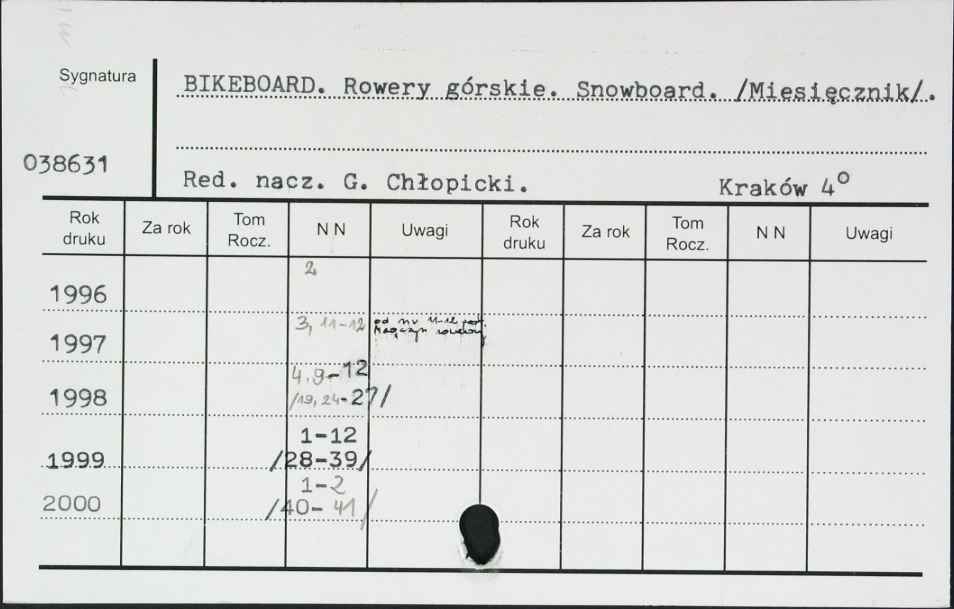 Sygnatura
BIKEBOARD. Rowery górskie. Snowboard. /Miesięcznik/.
038631
Red. nacz. G. Chłopicki. Kraków 4°
Rok druku Za rok Tom Rocz. N N Uwagi Rok druku Za rok Tom Rocz. N N Uwagi
2
1996
3, 11-12 od nr 11-12 pod.
Magazyn rowerowy
1997
4.9-12
1998 /19, 24-27/
1-12
1999 /28-39/
1-2
2000 /40-41/